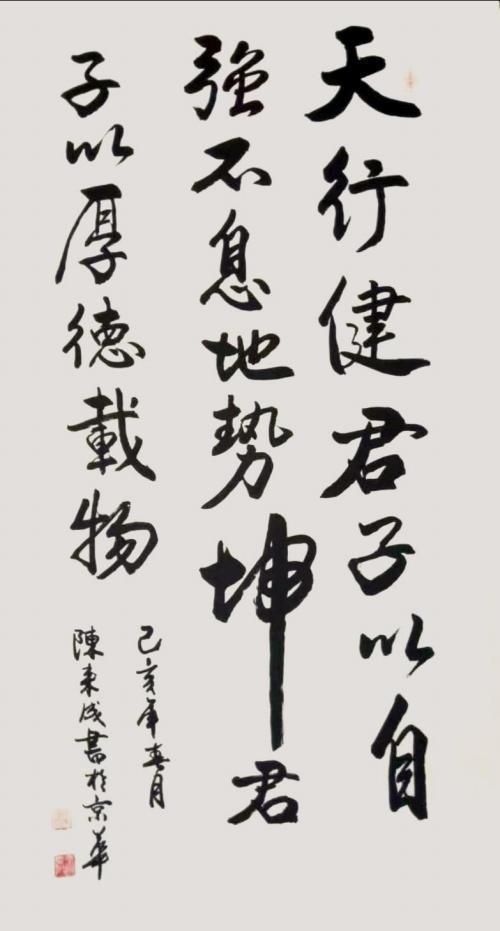 天行健君子以自
強不息地势坤君
子以厚德載物
己亥年春月
陳東成書於京華